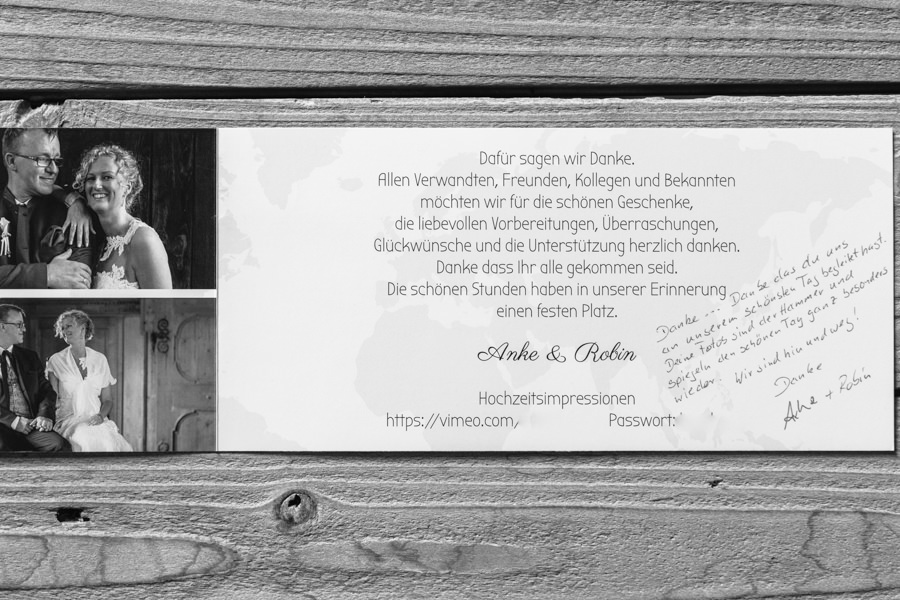 Dafür sagen wir Danke.
Allen Verwandten, Freunden, Kollegen und Bekannten
möchten wir für die schönen Geschenke,
die liebevollen Vorbereitungen, Überraschungen,
Glückwünsche und die Unterstützung herzlich danken.
Danke dass Ihr alle gekommen seid.
Die schönen Stunden haben in unserer Erinnerung
einen festen Platz.
Anke & Robin
Hochzeitsimpressionen
https://vimeo.com/ Passwort:
Danke ... Danke das du uns
an unserem schönsten Tag begleitet hast.
Deine Fotos sind der Hammer und
spiegeln den schönen Tag ganz besonders
wieder! Wir sind hin und weg!
Danke
Anke + Robin